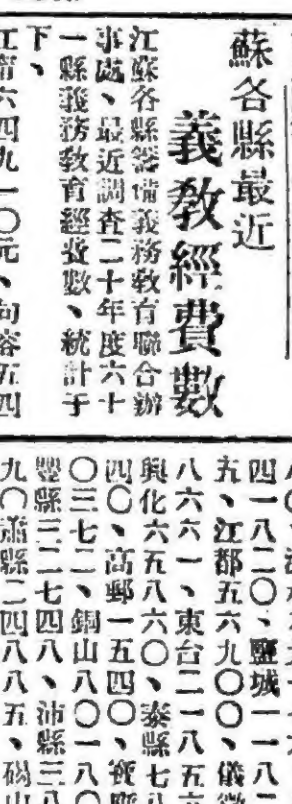 蘇各縣最近
義教經費數
江蘇各縣籌備義務教育聯合辦
事處、最近調查二十年度六十
一縣義務教育經費數、統計于
下、
江甯六四九一〇元、句容五四
四一八二〇、鹽城一一八二
五、江都五六九〇〇、儀徵
八六六一、東台二一八五六
興化六五八六〇、泰縣七八
四〇、高郵一五四〇、寶應
〇三七二、銅山八〇一八〇
豐縣三二七四八、沛縣三八
九〇蕭縣二四八八五、碭山